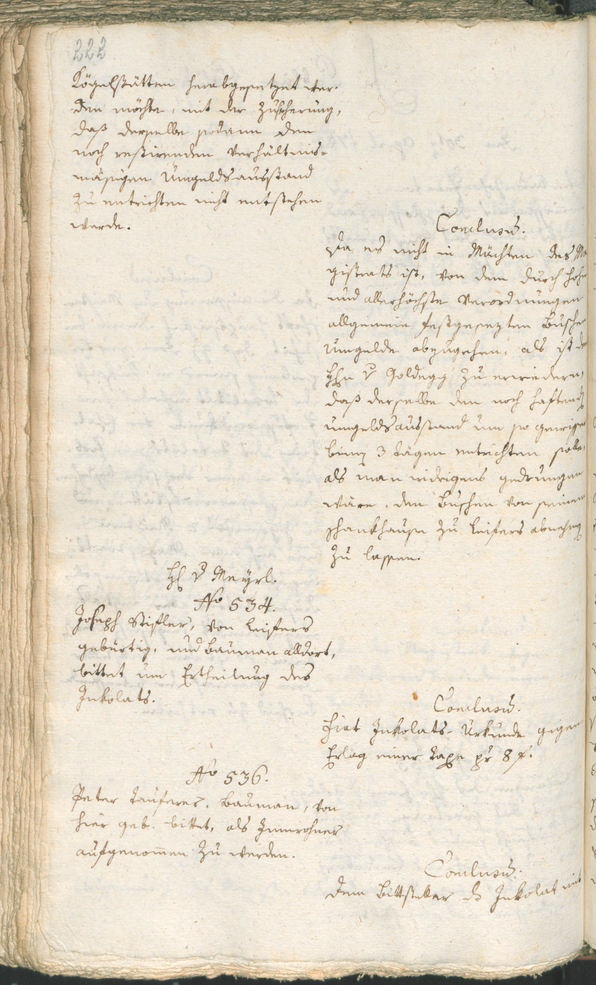 222
Kögelstätten herabgesetzet wer-
den möchte, mit der Zusicherung,
daß derselbe sodann den
noch restirenden Verhältnis-
mäsigen Umgelds ausstand
zu entrichten nicht entstehen
werde.
Conclusum.
Da es nicht in Mächten des Ma
gistrats ist, von dem durch hohe
und allerhöchste Verordnungen
allgemein festgesezten Buschen
Umgelde abzugehen, als ist dem
Hhn v Goldegg zu erwiedern,
daß derselbe den noch haftenden
umgelds ausstand um so gewisser
binnen 3 Tägen entrichten solle,
als man widrigens gedrungen
wäre, den Buschen von seinem
schankhause zu Leifers abnehmen
zu lassen.
Hh v Mayrl.
No 534.
Joseph Stifler, von Leifers
gebürtig, und Bauman alldort,
bittet um Ertheilung des
Inkolats.
Conclusum.
Fiat Inkolats-Urkunde gegen
Erlag einer Taxe pr 8 f.
No 536.
Peter Tauferer, Bauman, von
hier geb. bittet, als Innwohner
aufgenommen zu werden.
Conclusum.
Dem Bittsteller ds Inkolat mit